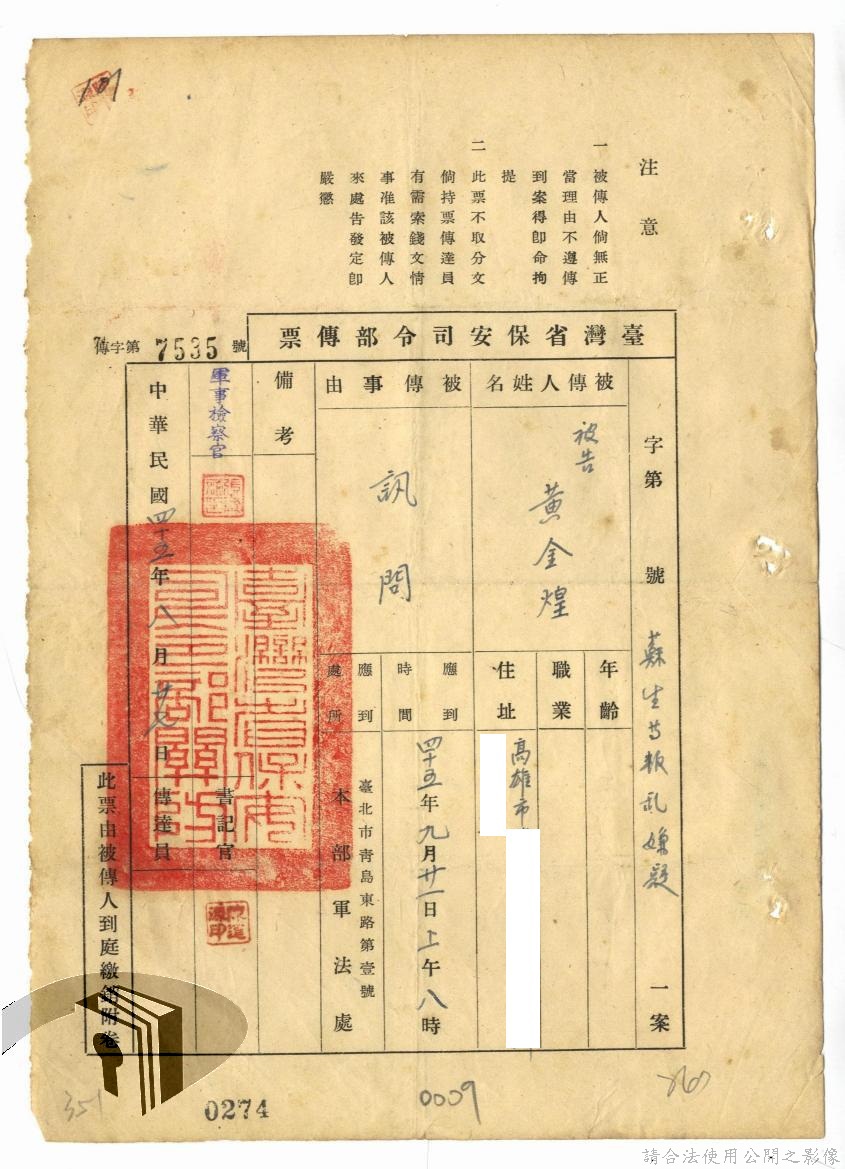 注意
一 被傳人倘無正
當理由不遵傳
到案得卽命拘
提
二 此票不取分文
倘持票傳達員
有需索錢文情
事准該被傳人
來處告發定卽
嚴懲
臺灣省保安司令部傳票
傳字第 7535 號
字第 號 蘇生等叛乱嫌疑 一案
被傳人姓名
被告 黃金煌
年齡
職業
住址
高雄市
被傳事由
訊問
應到時間
四十五年九月廿一日上午八時
應到處所
臺北市靑島東路第壹號
本部軍法處
備考
軍事檢察官
書記官
傳達員
臺灣省保安司令部關防
中華民國四十五年八月廿七日
此票由被傳人到庭繳銷附卷
101
351
0274
0009
請合法使用公開之影像